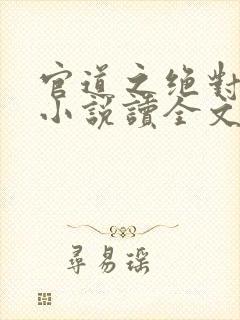 官道之绝對
小說讀全文
尋易瑶